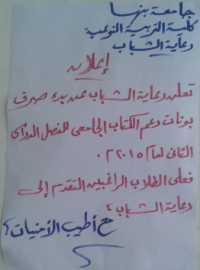 جامعة بنها
كلية التربية النوعية
رعاية الشباب
إعلان
تعلن رعاية الشباب عن بدء صرف
بونات دعم الكتاب الجامعى للفصل الدراسى
الثانى لعام ٢٠١٥
فعلى الطلاب الراغبين التقدم إلى
رعاية الشباب
مع أطيب الأمنيات